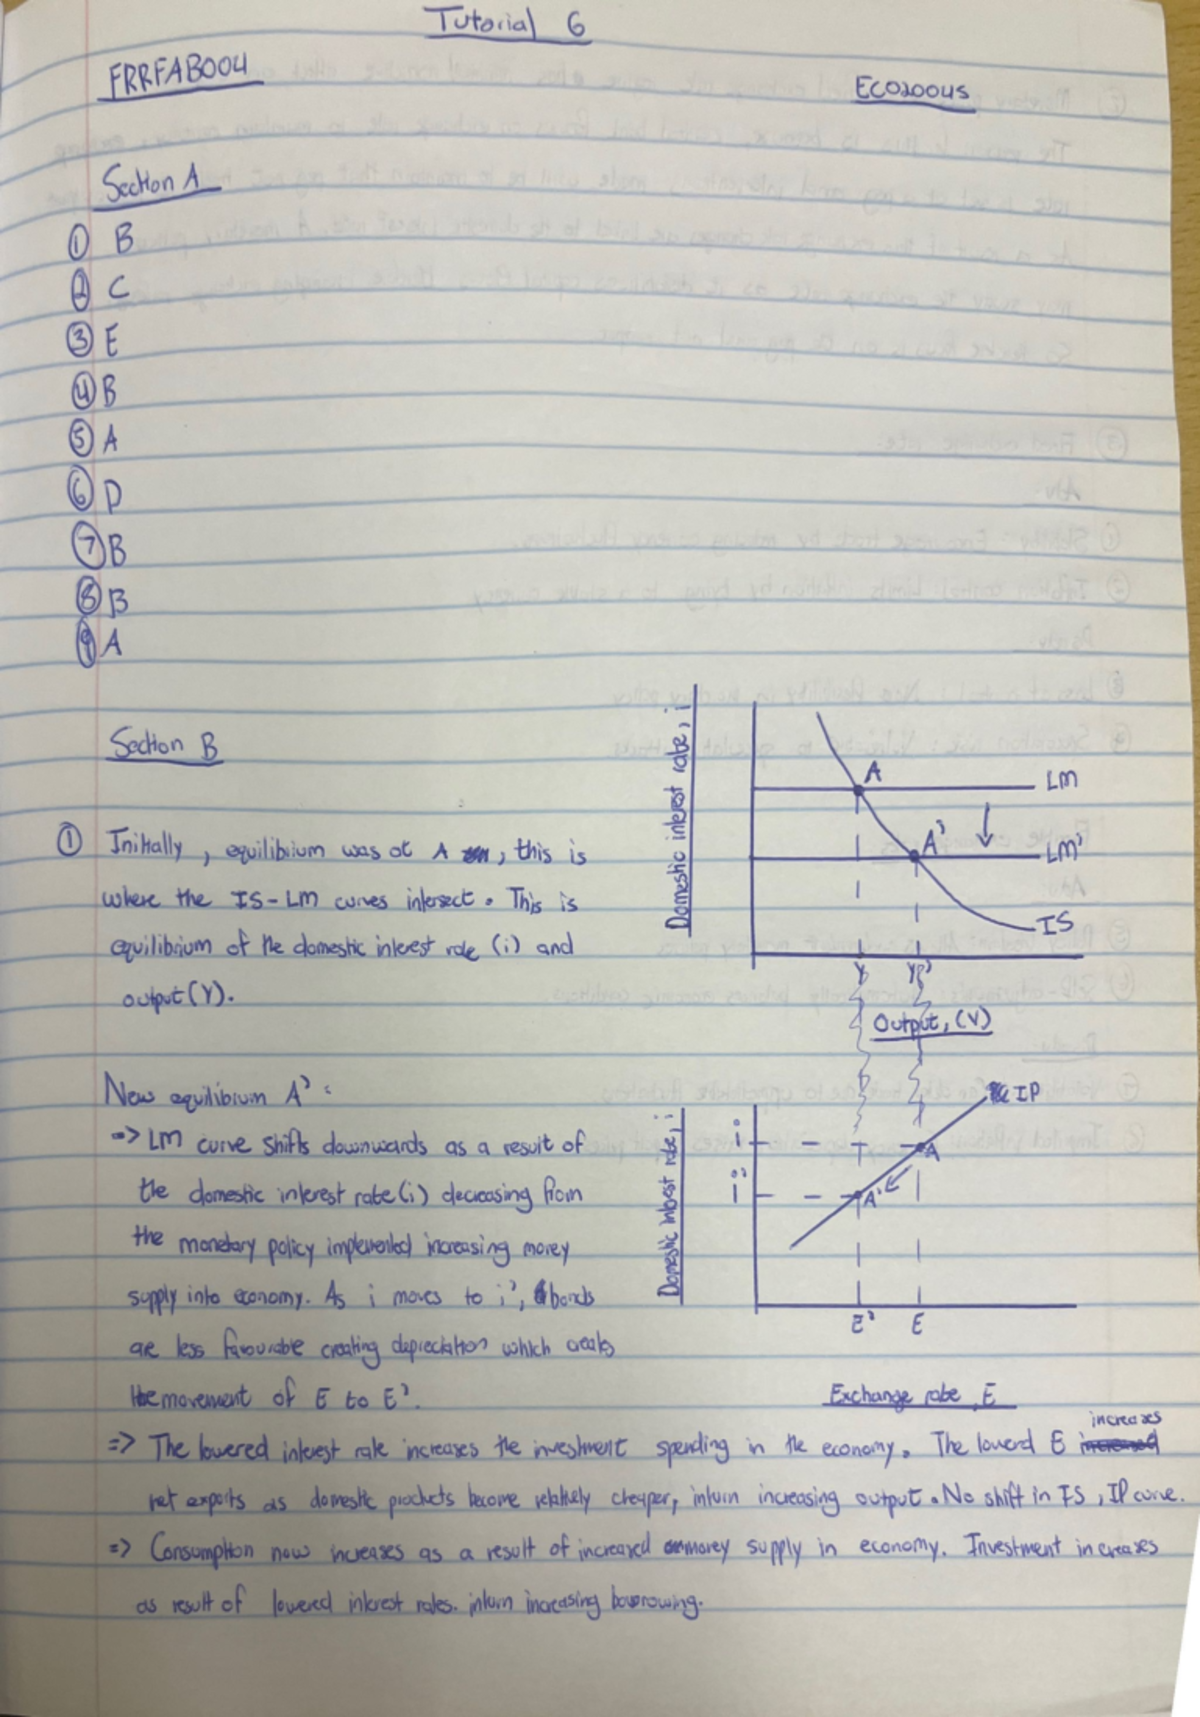 Tutorial 6
FRRFAB004
ECO2004S
Section A
① B
② C
③ E
④ B
⑤ A
⑥ D
⑦ B
⑧ B
⑨ A
Section B
① Initially, equilibrium was at A, this is
where the IS-LM curves intersect. This is
equilibrium of the domestic interest rate (i) and
output (Y).
Domestic interest rate, i
A
LM
A'
LM'
IS
Y
Output, (Y)
New equilibrium A':
=> LM curve shifts downwards as a result of
the domestic interest rate (i) decreasing from
the monetary policy implemented increasing money
supply into economy. As i moves to i', bonds
are less favourable creating depreciation which creates
the movement of E to E'.
Domestic interest rate, i
IP
i
A
i'
A'
E' E
Exchange rate, E
=> The lowered interest rate increases the investment spending in the economy. The lowerd E increases
net exports as domestic products become relatively cheaper, inturn increasing output. No shift in IS, IP curve.
=> Consumption now increases as a result of increased money supply in economy. Investment increases
as result of lowered interest rates. inturn increasing bowrowing.